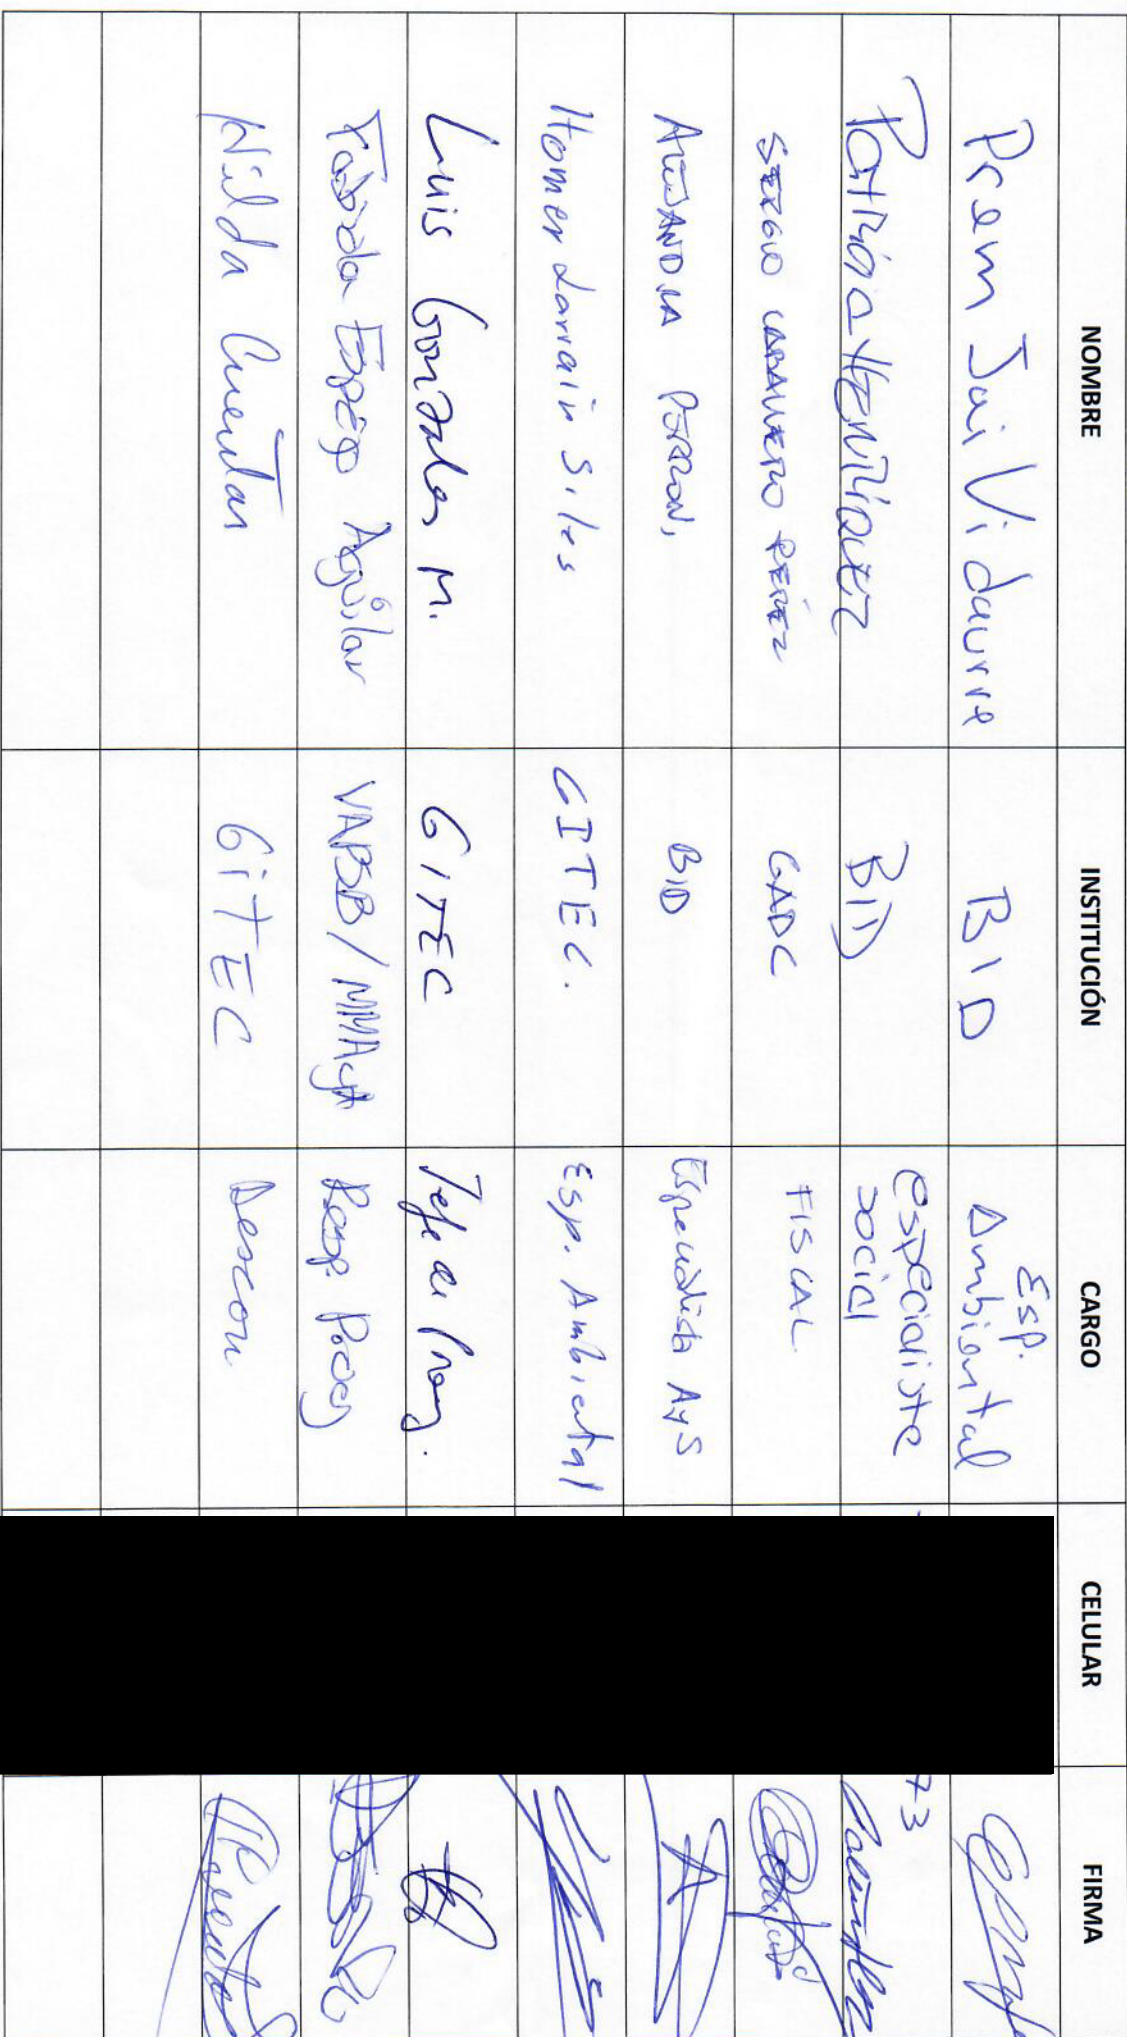 NOMBRE INSTITUCIÓN CARGO CELULAR FIRMA
Prem Jai Vidaurre BID Esp. Ambiental
Patricia Henriquez BID especialista social 73
SERGIO CABALLERO PEREZ GADC FISCAL
ALEJANDRA BID Especialista AyS
Homer Larrain Siles GITEC. Esp. Ambiental
Luis Gonzales M. GITEC Jefe de Proy.
Aguilar VAPSB/MMAyA Resp.
Hilda Cuentas GiTEC Descom